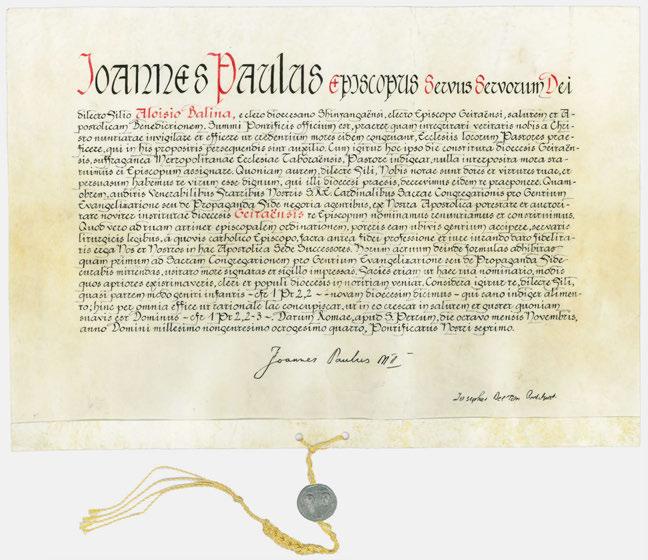 IOANNES PAULUS EPISCOPUS Servus Servorum Dei
dilecto Filio Aloisio Balina, e clero dioecesano Shinyangaënsi, electo Episcopo Geitaënsi, salutem et A-
postolicam Benedictionem. Summi Pontificis officium est, praeter quam integritati veritatis nobis a Chri-
sto nuntiatae invigilare et efficere ut credentium mores eidem congruant, Ecclesiis locorum Pastores prae-
ficere, qui in his propositis persequendis sint auxilio. Cum igitur hoc ipso die constituta dioecesis Geitaën-
sis, suffraganea Metropolitanae Ecclesiae Taboraënsis, Pastore indigeat, nulla interposita mora sta-
tuimus ei Episcopum assignare. Quoniam autem, dilecte Fili, Nobis notae sunt dotes et virtutes tuae, et
persuasum habemus te virum esse dignum, qui illi dioecesi praesis, decrevimus eidem te praeponere. Quam-
obrem, auditis Venerabilibus Fratribus Nostris S.R.E. Cardinalibus Sacrae Congregationis pro Gentium
Evangelizatione seu de Propaganda Fide negotia agentibus, ex Nostra Apostolica potestate et auctori-
tate noviter institutae dioecesis Geitaënsis te Episcopum nominamus renuntiamus et constituimus.
Quod vero ad tuam attinet episcopalem ordinationem, poteris eam ubivis gentium accipere, servatis
liturgicis legibus, à quovis catholico Episcopo, facta antea fidei professione et iure iurando dato fidelita-
tis erga Nos et Nostros in hac Apostolica Sede Successores. Horum actuum deinde formulas adhibitas
quam primum ad Sacram Congregationem pro Gentium Evangelizatione seu de Propaganda Fide
curabis mittendas, usitato more signatas et sigillo impressas. Facies etiam ut haec tua nominatio, modis
quos aptiores existimaveris, cleri et populi dioecesis in notitiam veniat. Considera igitur te, dilecte Fili,
quasi partem modo geniti infantis - cfr 1 Pt 2,2 - - novam dioecesim dicimus - qui sano indiget alimen-
to; hinc per omnia effice ut rationale lac concupiscat, ut in eo crescat in salutem et gustet quoniam
suavis est Dominus - cfr 1 Pt 2,2-3 -. Datum Romae, apud S. Petrum, die octavo mensis Novembris,
anno Domini millesimo nongentesimo octogesimo quarto, Pontificatus Nostri septimo.
Joannes Paulus PP II
Iosephus Del Ton